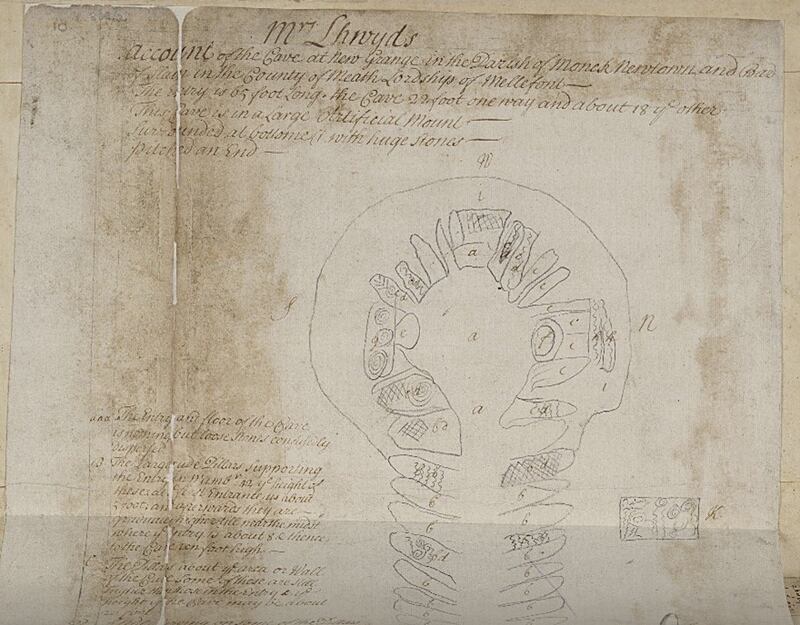 Mr Lhwyds
Account of the Cave at New Grange in the Parish of Monek Newtown and Bad
of Slain in the County of Meath Lordship of Mellefont
The entry is 65 foot Long. the Cave 22 foot one way and about 18 ye other
This Cave is in a Large Artificial Mount
surrounded at bottome with huge stones
pitched an End
W
i
a
d
S
N
a
c
c
c
g
e
f
h
a
i
d
d
6d
6
6
6
6
6
6
6
d
6
6
K
aaa The Entry and floor of the Cave
is nothing but loose stones confusedly
The Large rude Pillars supporting
the Entry in Numbr 42, ye height of
these at ye first Entrance is about
foot, and afterwards they are
gradually higher till near the midst
where ye Entry is about 8 & thence
to the Cave ten foot high
The Pillars about ye area or Wall
of the Cave some of these are little
higher than those in the Entry & ye
height of the Cave may be about